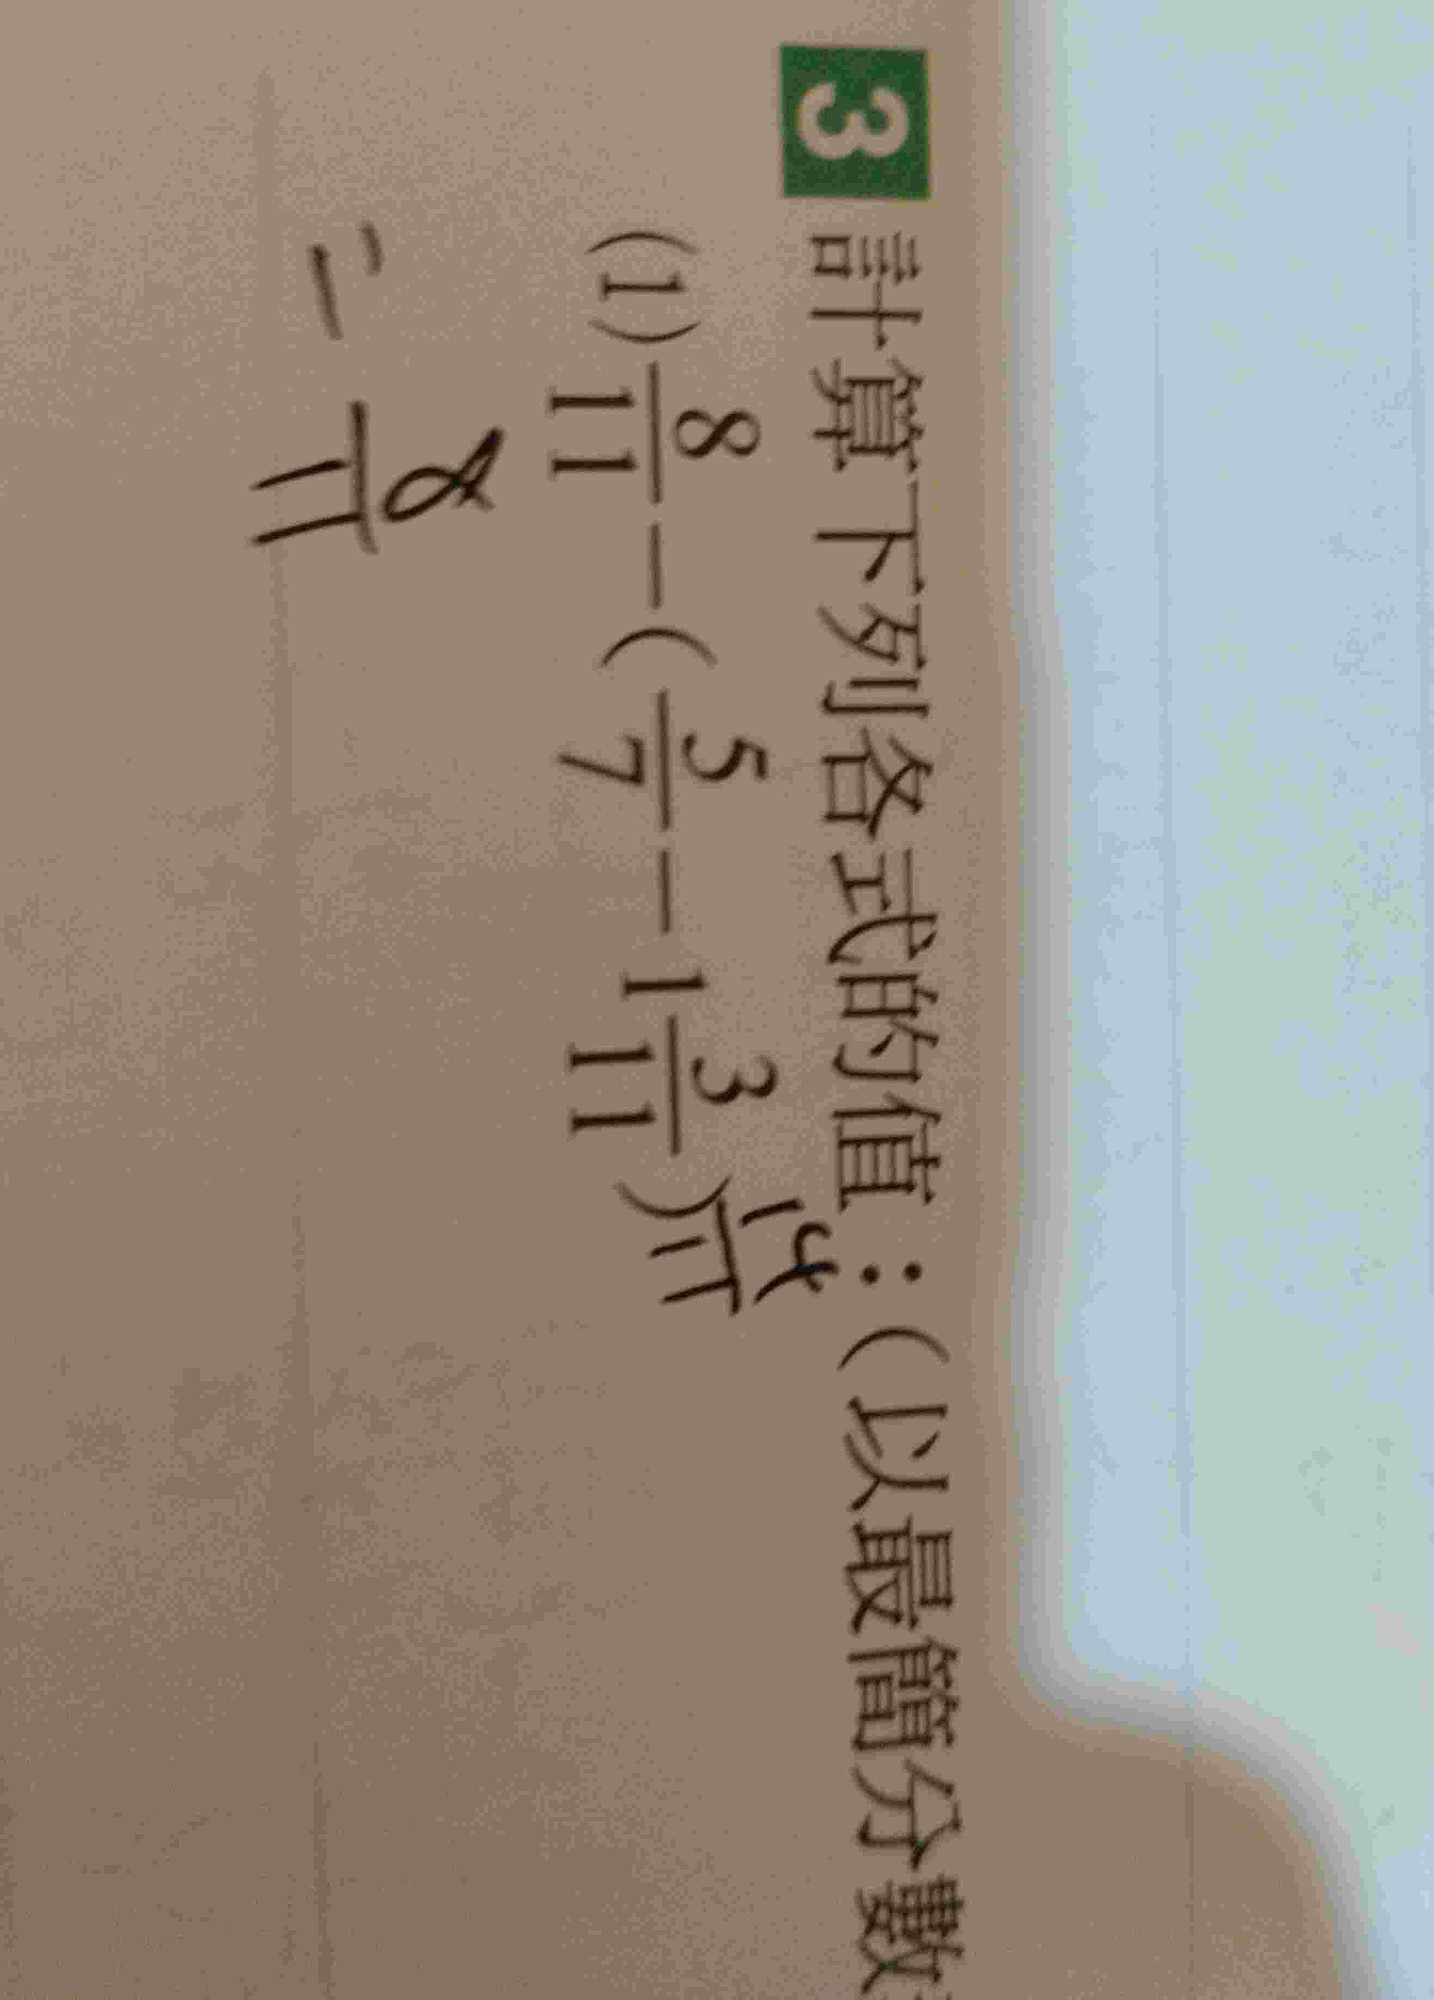 3 計算下列各式的值：(以最簡分數
(1) 8/11 - (5/7 - 1 3/11) 14/11
= 8/11